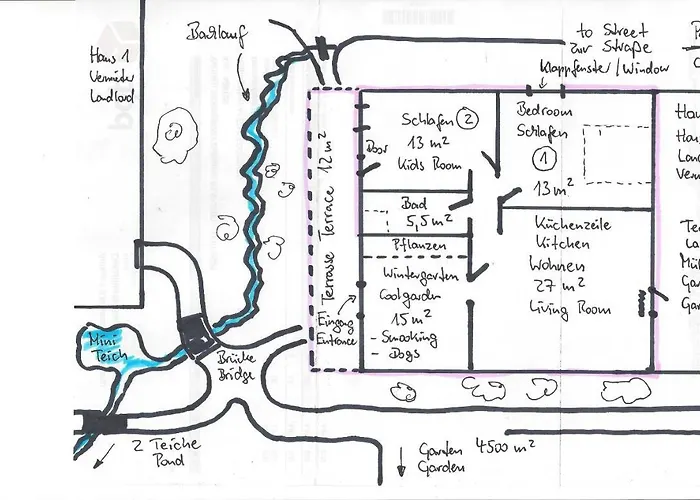 Bachlauf
to Street
zur Straße
Klappfenster / Window
Haus 1
Vermieter
Landlord
Schlafen ②
13 m²
Kids Room
Door
Bedroom
Schlafen
①
13 m²
Terrasse Terrace 12 m²
Bad
5,5 m²
Pflanzen
Wintergarten
Coolgarden
15 m²
- Smoking
- Dogs
Küchenzeile
Kitchen
Wohnen
27 m²
Living Room
Eingang
Entrance
Mini
Teich
Brücke
Bridge
2 Teiche
Pond
Garten 4500 m²
Garden